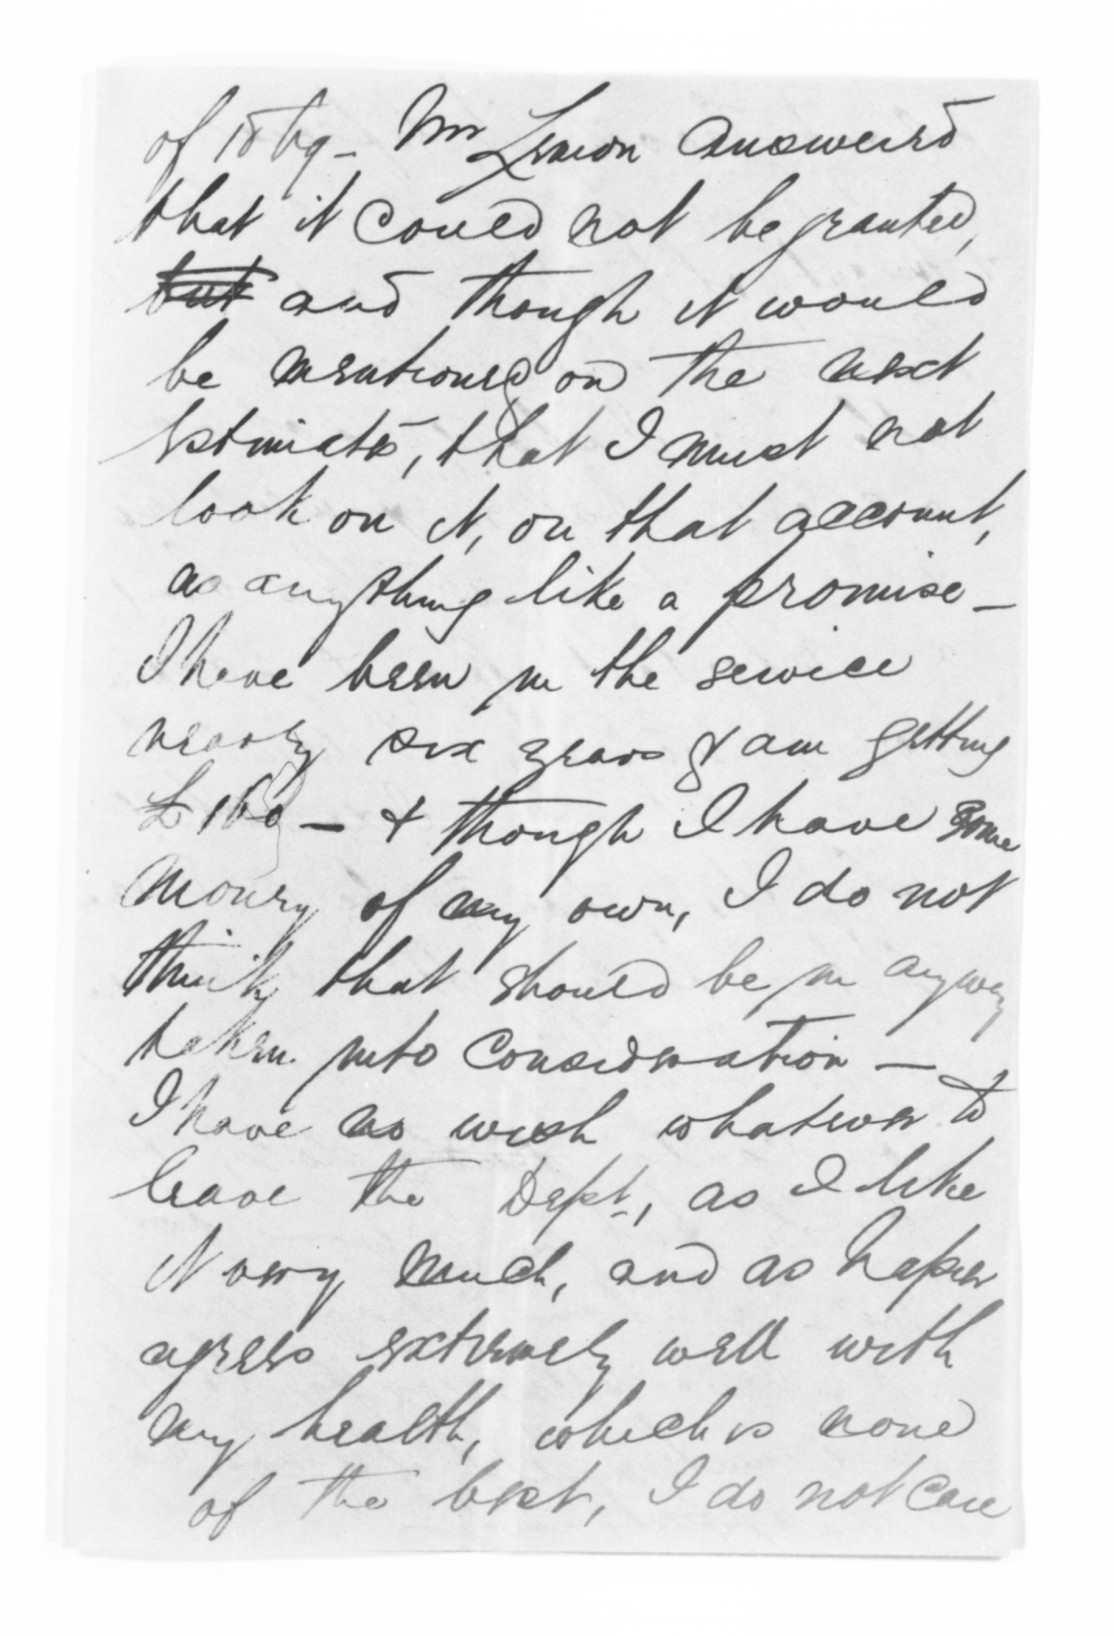 of Mr Lemon answered
that it could not be granted,
but and though it would
be mentioned on the next
estimates, that I must not
look on it, on that account,
as anything like a promise –
I have been in the service
nearly six years & am getting
£160 – & though I have some
money of my own, I do not
think that should be in anyway
taken into consideration –
I have no wish whatever to
leave the Dept, as I like
it very much, and as Napier
agrees extremely well with
my health, which is none
of the best, I do not care